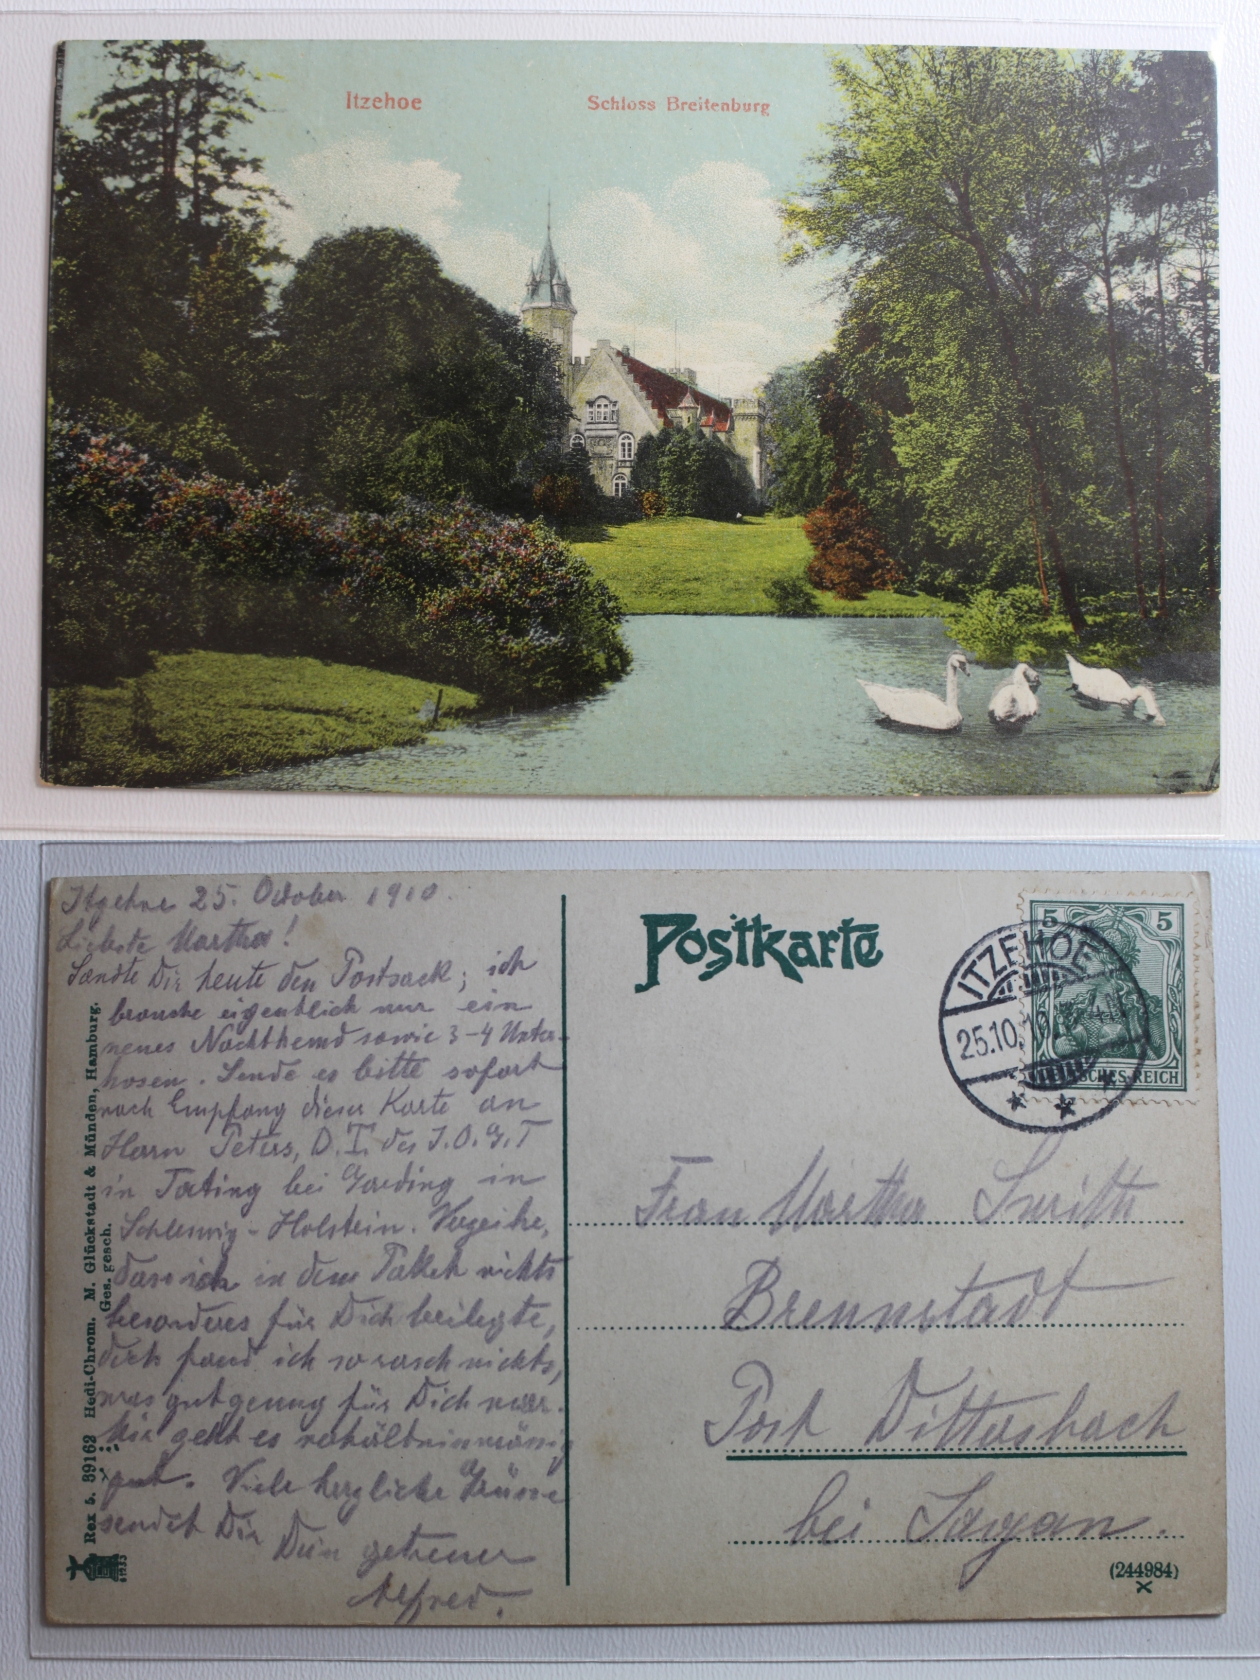 Itzehoe
Schloss Breitenburg
Itzehoe 25. October 1910.
Liebste Martha!
Sandte Dir heute den Postsack; ich
brauche eigentlich nur ein
neues Nachthemd sowie 3-4 Unter-
hosen. Sende es bitte sofort
nach Empfang dieser Karte an
Herrn Peters, D.T. des I.O.G.T
in Tating bei Garding in
Schleswig-Holstein. Verzeihe,
dass ich in dem Packet nichts
besonderes für Dich beilegte,
doch fand ich so rasch nichts,
was gut genug für Dich war.
Mir geht es verhältnismässig
gut. Viele herzliche Grüsse
sendet Dir
Dein getreuer
Alfred.
Rex 5. 89162 Hedi-Chrom. M. Glückstadt & Münden, Hamburg.
Ges. gesch.
Postkarte
5 5
DEUTSCHES REICH
ITZEHOE
25.10.
Frau Martha
Brennstadt
Post Dittersbach
bei Sagan.
(244984)